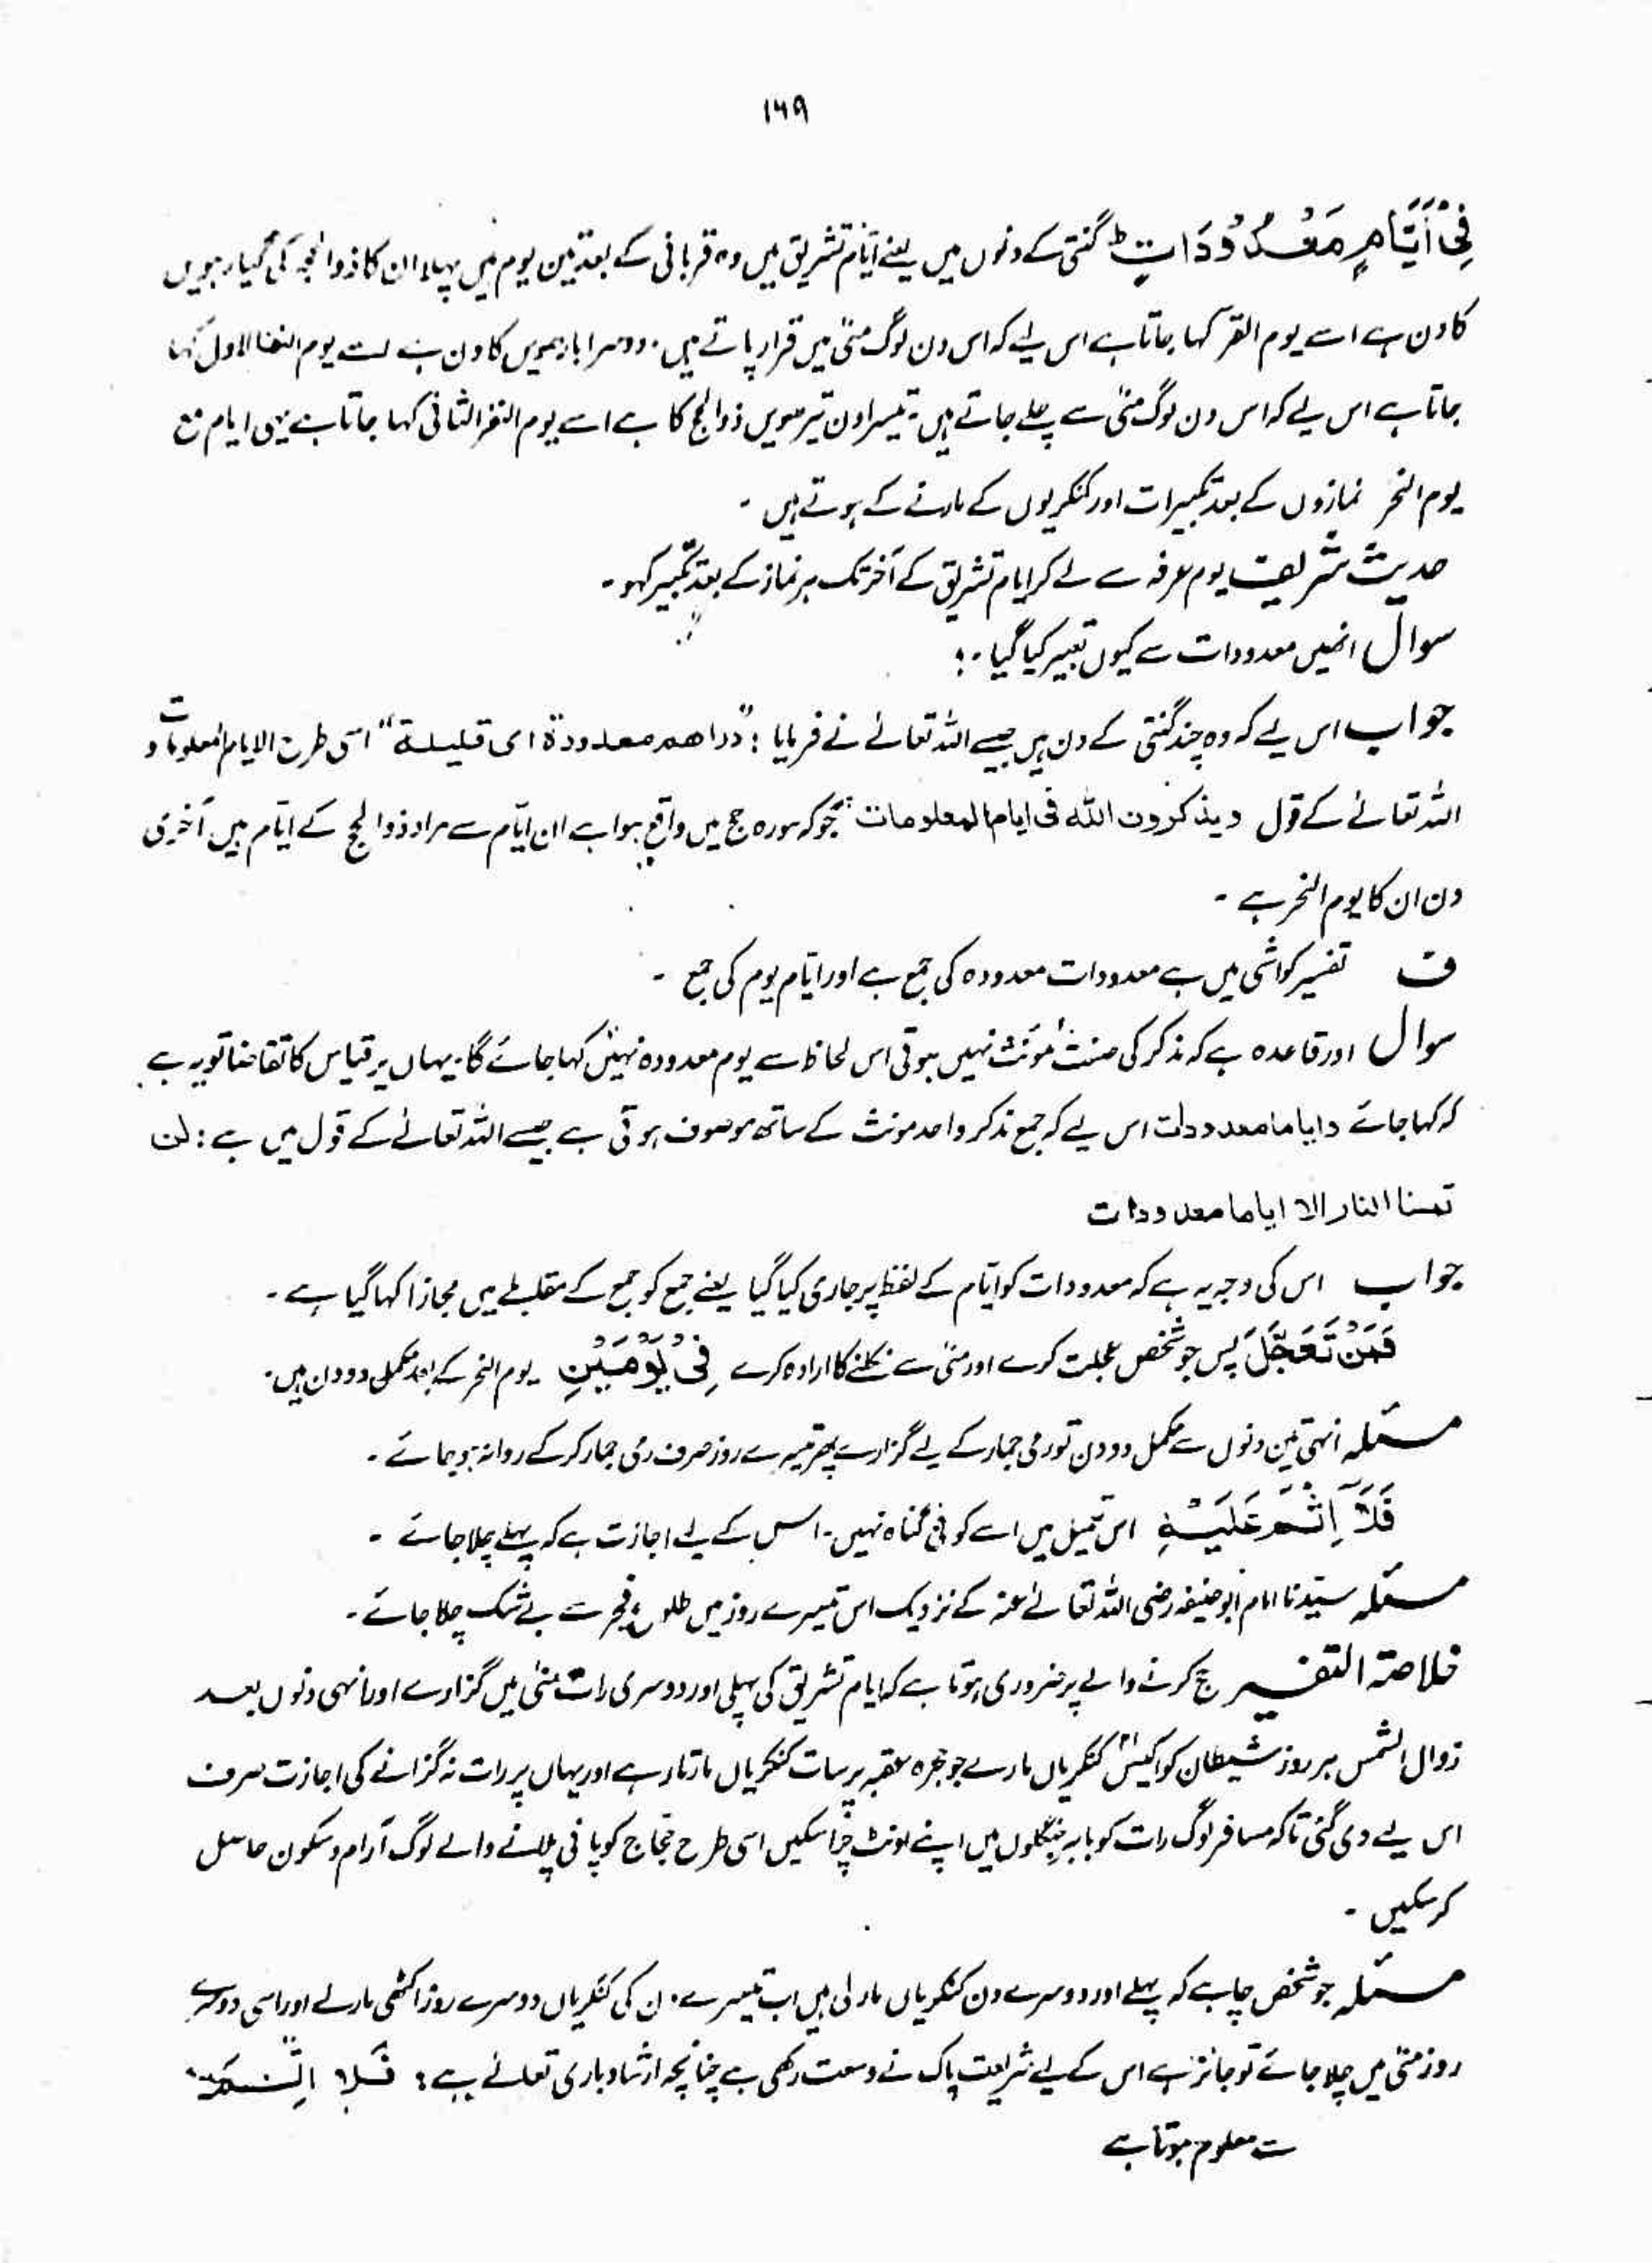 ۱۶۹
فِیْ اَیَّامٍ مَّعْدُوْدَاتٍ ط گنتی کے دنوں میں یعنے ایّام تشریق میں وہ قربانی کے بعد تین یوم ہیں پہلا ان کا ذوالحجہ کی گیارہویں
کا دن ہے اسے یوم القر کہا جاتا ہے اس لیے کہ اس دن لوگ منیٰ میں قرار پاتے ہیں۔ دوسرا بارہویں کا دن ہے اسے یوم النفر الاول کہا
جاتا ہے اس لیے کہ اس دن لوگ منیٰ سے چلے جاتے ہیں۔ تیسرا دن تیرھویں ذوالحج کا ہے اسے یوم النفر الثانی کہا جاتا ہے یہی ایام مع
یوم النحر نمازوں کے بعد تکبیرات اور کنکریوں کے مارنے کے ہوتے ہیں ۔
حدیث شریف یوم عرفہ سے لے کر ایام تشریق کے آخر تک ہر نماز کے بعد تکبیر کہو ۔
سوال انھیں معدودات سے کیوں تعبیر کیا گیا ۔؟
جواب اس لیے کہ وہ چند گنتی کے دن ہیں جیسے اللہ تعالےٰ نے فرمایا : "دراھم معدودۃ ای قلیلۃ" اسی طرح الایام المعلومات و
اللہ تعالےٰ کے قول ویذکرون اللہ فی ایام المعلومات جو کہ سورہ حج میں واقع ہوا ہے ان ایّام سے مراد ذوالحج کے ایّام ہیں آخری
دن ان کا یوم النحر ہے ۔
ف تفسیر کواشی میں ہے معدودات معدودہ کی جمع ہے اور ایّام یوم کی جمع ۔
سوال اور قاعدہ ہے کہ مذکر کی صفت مؤنث نہیں ہوتی اس لحاظ سے یوم معدودہ نہیں کہا جائے گا۔ یہاں پر قیاس کا تقاضا تو یہ ہے
کہ کہا جائے دایاما معدودات اس لیے کہ جمع مذکر واحد مونث کے ساتھ موصوف ہوتی ہے جیسے اللہ تعالےٰ کے قول میں ہے : لن
تمسنا النار الا ایاما معدودات
جواب اس کی وجہ یہ ہے کہ معدودات کو ایّام کے لفظ پر جاری کیا گیا یعنے جمع کو جمع کے مقابلے میں مجازاً کہا گیا ہے ۔
فَمَنْ تَعَجَّلَ پس جو شخص عجلت کرے اور منیٰ سے نکلنے کا ارادہ کرے فِیْ یَوْمَیْنِ یوم النحر کے بعد مکمل دو دن ہیں۔
مسئلہ انہی تین دنوں سے مکمل دو دن تو رمی جمار کے لیے گزارے پھر تیسرے روز صرف رمی جمار کر کے روانہ ہو جائے ۔
فَلَآ اِثْمَ عَلَیْہِ اس تعجیل میں اسے کوئی گناہ نہیں ۔ اس کے لیے اجازت ہے کہ پہلے چلا جائے ۔
مسئلہ سیّدنا امام ابو حنیفہ رضی اللہ تعالےٰ عنہ کے نزدیک اس تیسرے روز میں طلوع فجر سے بے شک چلا جائے ۔
خلاصۃ التفسیر حج کرنے والے پر ضروری ہوتا ہے کہ ایام تشریق کی پہلی اور دوسری رات منیٰ میں گزارے اور انہی دنوں بعد
زوال الشمس ہر روز شیطان کو اکیس کنکریاں مارے جو جمرہ عقبہ پر سات کنکریاں مارتا رہے اور یہاں پر رات نہ گزانے کی اجازت صرف
اس لیے دی گئی تاکہ مسافر لوگ رات کو باہر جنگلوں میں اپنے اونٹ چرا سکیں اسی طرح حجاج کو پانی پلانے والے لوگ آرام و سکون حاصل
کر سکیں ۔
مسئلہ جو شخص چاہے کہ پہلے اور دوسرے دن کنکریاں مار لی ہیں اب تیسرے دن کی کنکریاں دوسرے روز اکٹھی مارلے اور اسی دوسرے
روز منیٰ میں چلا جائے تو جائز ہے اس کے لیے شریعت پاک نے وسعت رکھی ہے چنانچہ ارشاد باری تعالےٰ ہے : فَلَا اِثْمَ
سے معلوم ہوتا ہے